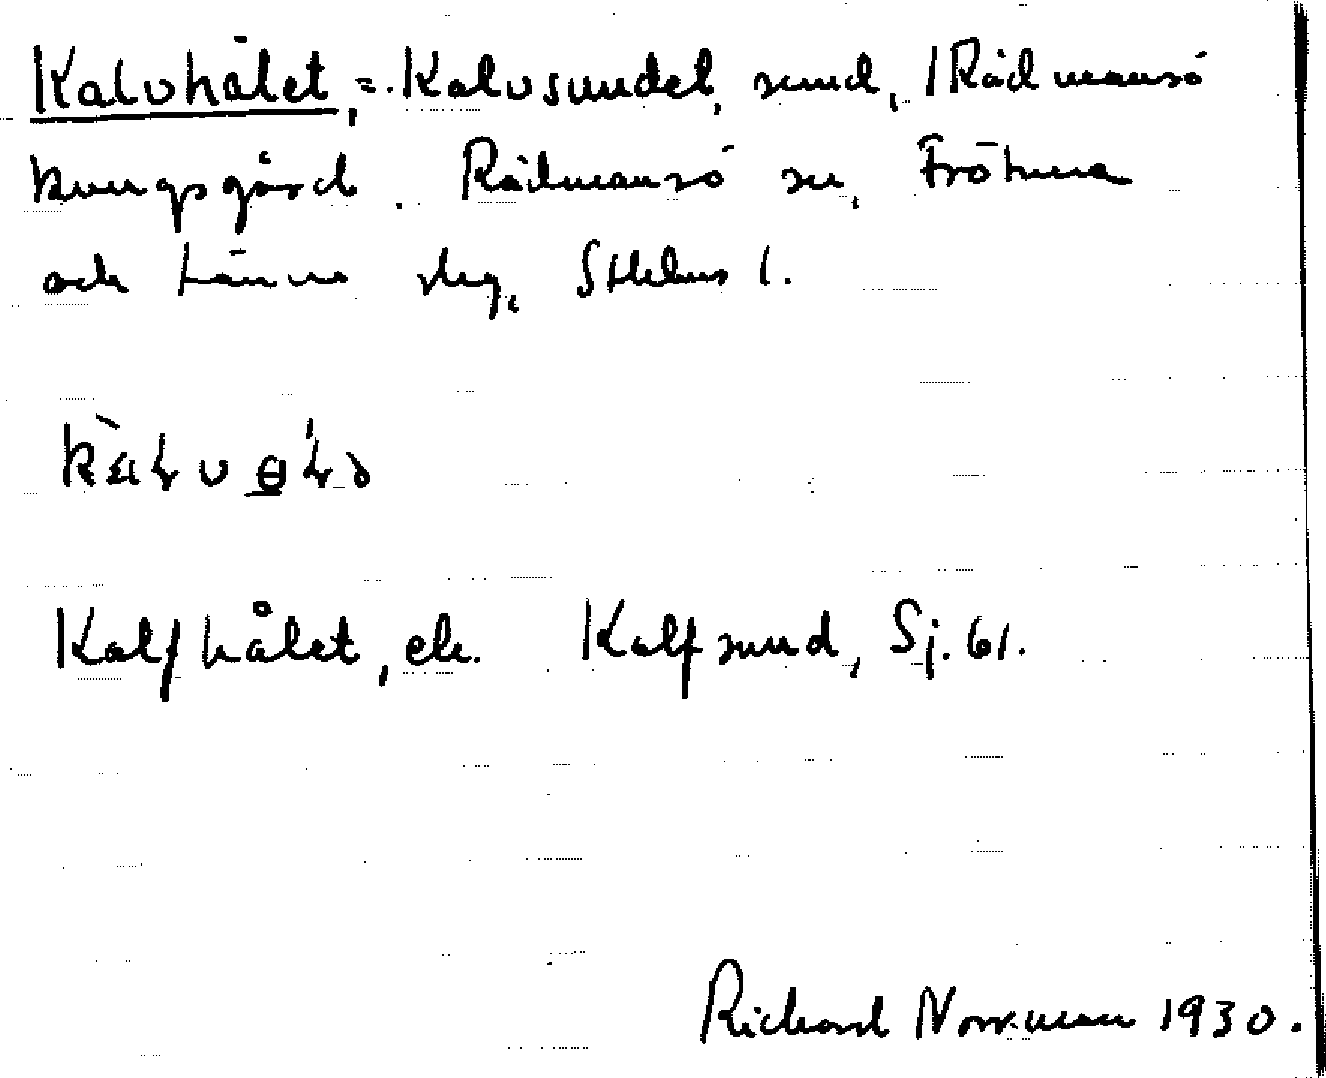 Kalvhålet, = Kalvsundet, sund, / Rådmansö
kungsgård. Rådmansö sn, Frötuna
och Länna slg, Sthlms l.
Kalfhålet, el. Kalfsund, Sj. 61.
Richard Norrman 1930.